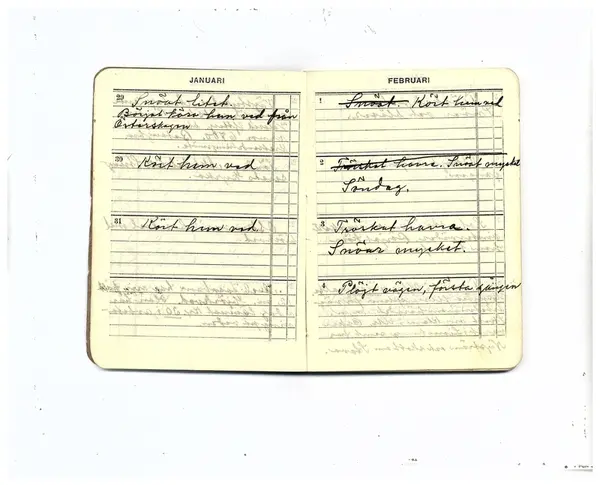 JANUARI
29 Snöat litet.
Börjat köra hem ved från
Österskogen
30 Kört hem ved
31 Kört hem ved
FEBRUARI
1 Snöat. Kört hem ved
2 Tröskat havre. Snöat mycket
Söndag.
3 Tröskat havra.
Snöar mycket.
4 Plöjt vägen, första gången